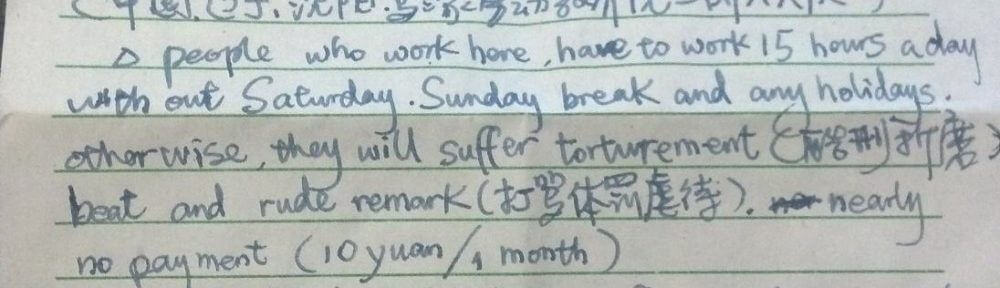 (中国.
△ people who work here, have to work 15 hours a day
with out Saturday. Sunday break and any holidays.
otherwise, they will suffer torturement (刑折磨)
beat and rude remark (打骂体罚虐待). nearly
no payment (10 yuan/1 month)